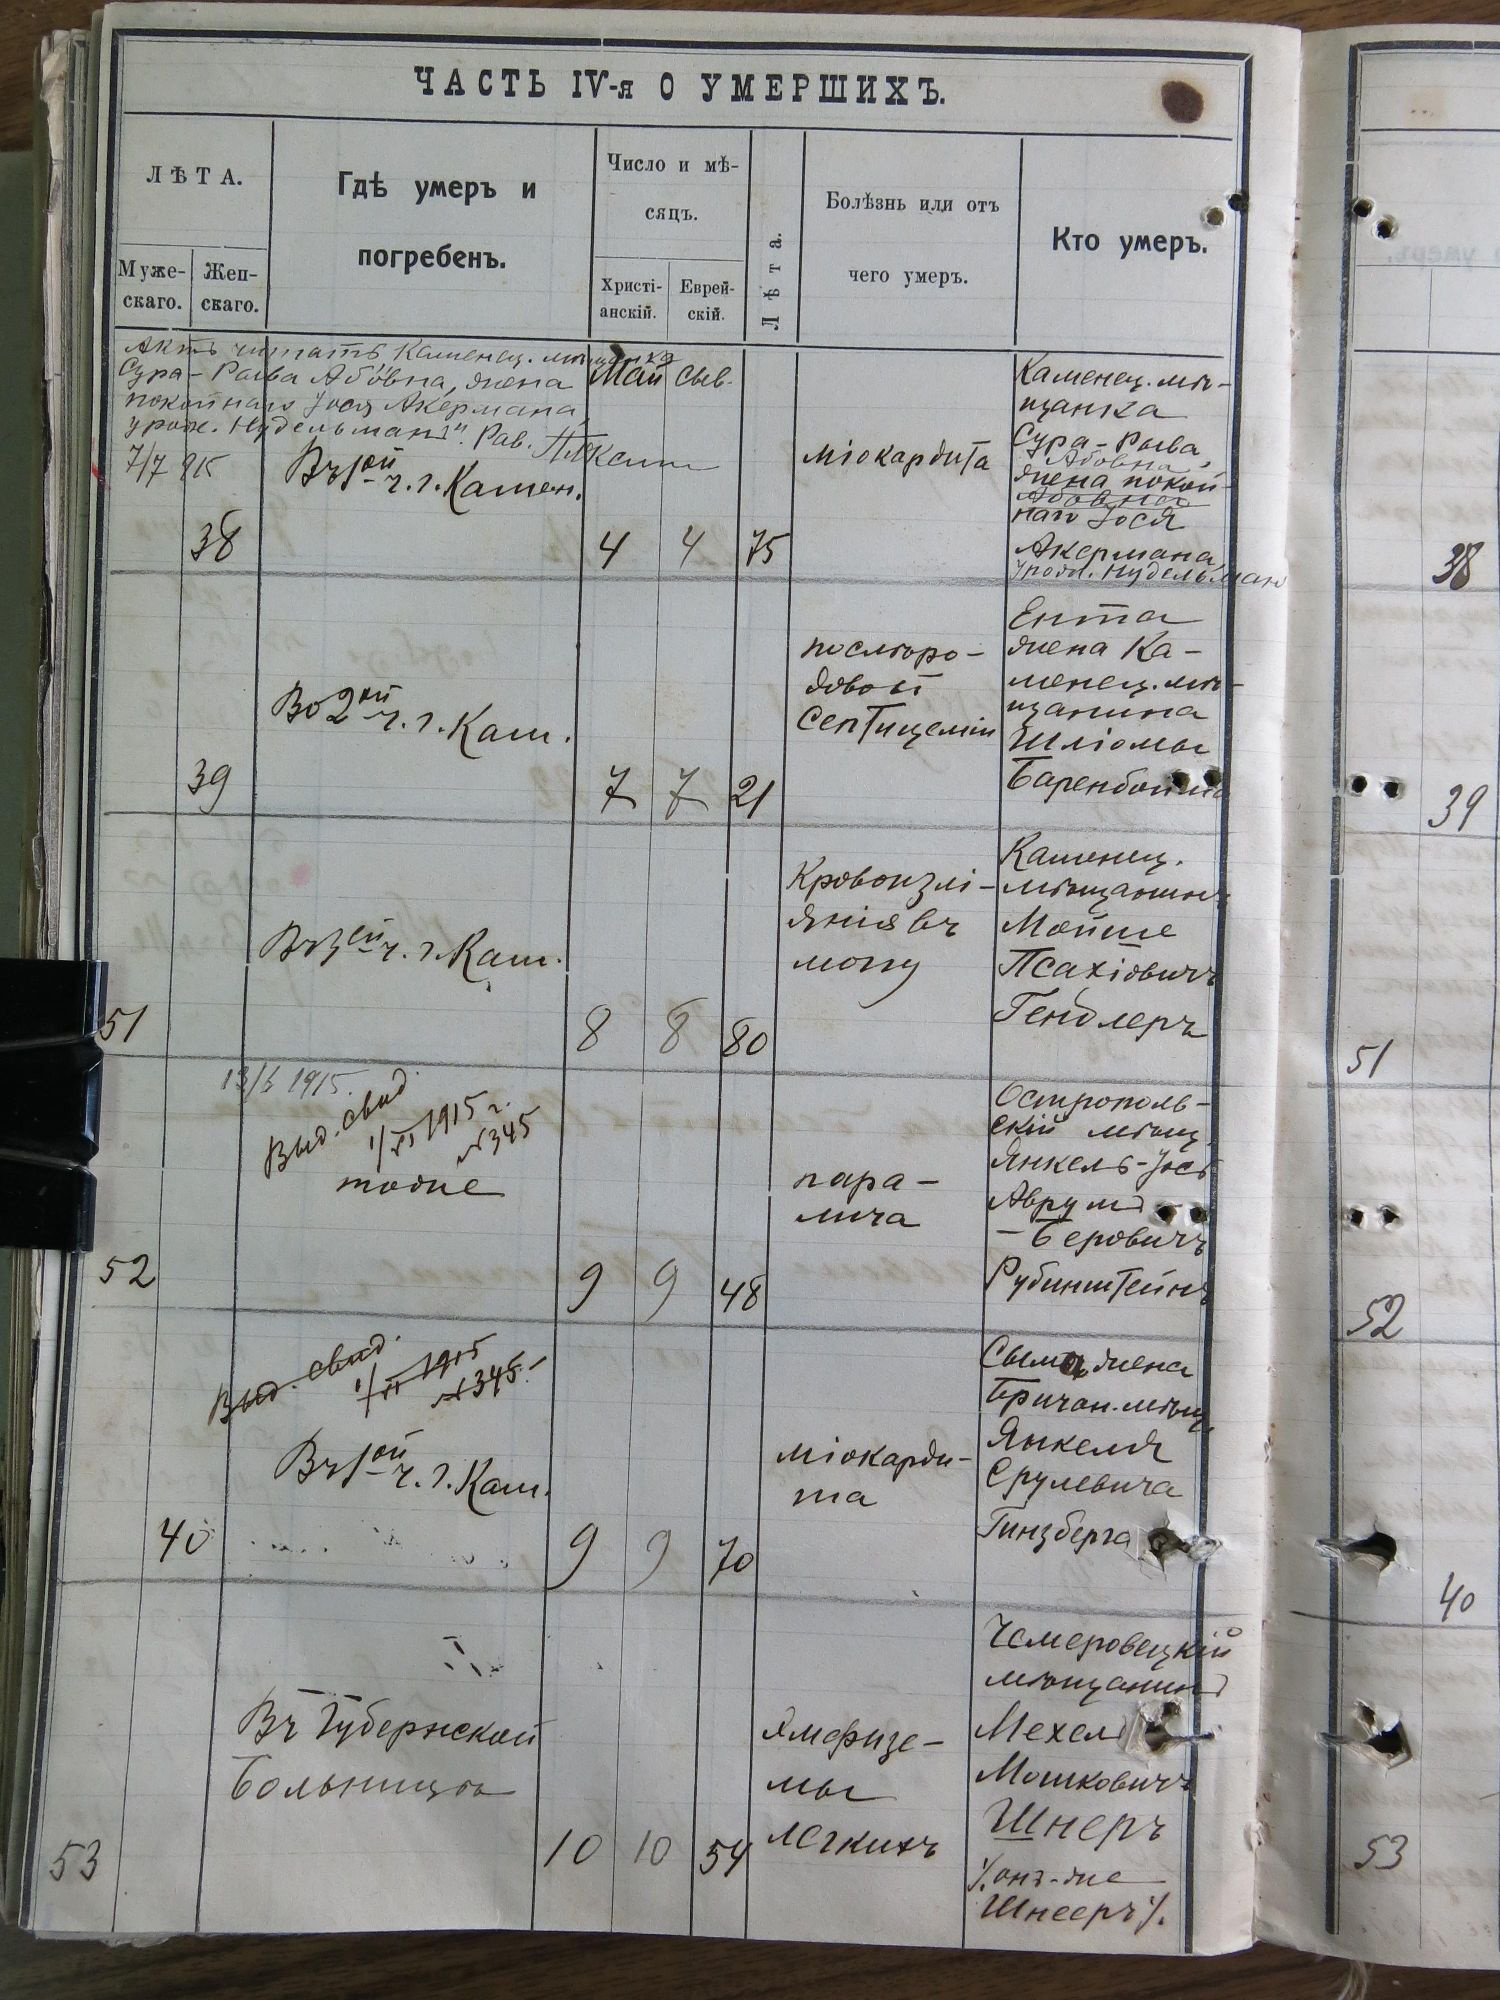 ЧАСТЬ IV-я О УМЕРШИХЪ.
ЛѢТА.
Муже-
скаго.
Жен-
скаго.
Гдѣ умеръ и
погребенъ.
Число и мѣ-
сяцъ.
Христі-
анскій.
Еврей-
скій.
Лѣта.
Болѣзнь или отъ
чего умеръ.
Кто умеръ.
Актъ читать Каменец. мѣщанка
Сура-Рыва Абовна, жена
покойнаго Іося Акермана,
урож. Нудельманъ". Рав.
7/7 915
Май
Сыв.
38
Въ 1ой ч. г. Камен.
4
4
75
міокардита
Каменец. мѣ-
щанка
Сура-Рыва
Абовна,
жена покой-
Абовна
наго Іося
Акермана,
урожд. Нудельман
38
39
Во 2ой ч. г. Кам.
7
7
21
послѣро-
довой
септицеміи
Ента
жена Ка-
менец. мѣ-
щанина
Шліомы
Баренбойма
39
51
Въ 3ей ч. г. Кам.
8
8
80
Кровоизлі-
янія въ
мозгу
Каменец.
мѣщанинъ
Мойше
Псахіовичъ
Гендлеръ
51
1915.
Выд. свид.
1/VI 1915 г.
№345
тоже
52
9
9
48
пара-
лича
Острополь-
скій мѣщ.
Янкель-Іось
Аврумъ
-Беровичъ
Рубинштейнъ
52
Выд. свид.
1/VI 1915
№345.
40
Въ 1ой ч. г. Кам.
9
9
70
міокарди-
та
Сыма, жена
Бричан. мѣщ.
Янкеля
Срулевича
Гинзберга
40
53
Въ Губернской
Больницѣ
10
10
54
Эмфизе-
мы
легкихъ
Чемеровецкій
мѣщанинъ
Мехель
Мошковичъ
Шнеръ
/. онъ-же
Шнееръ /.
53